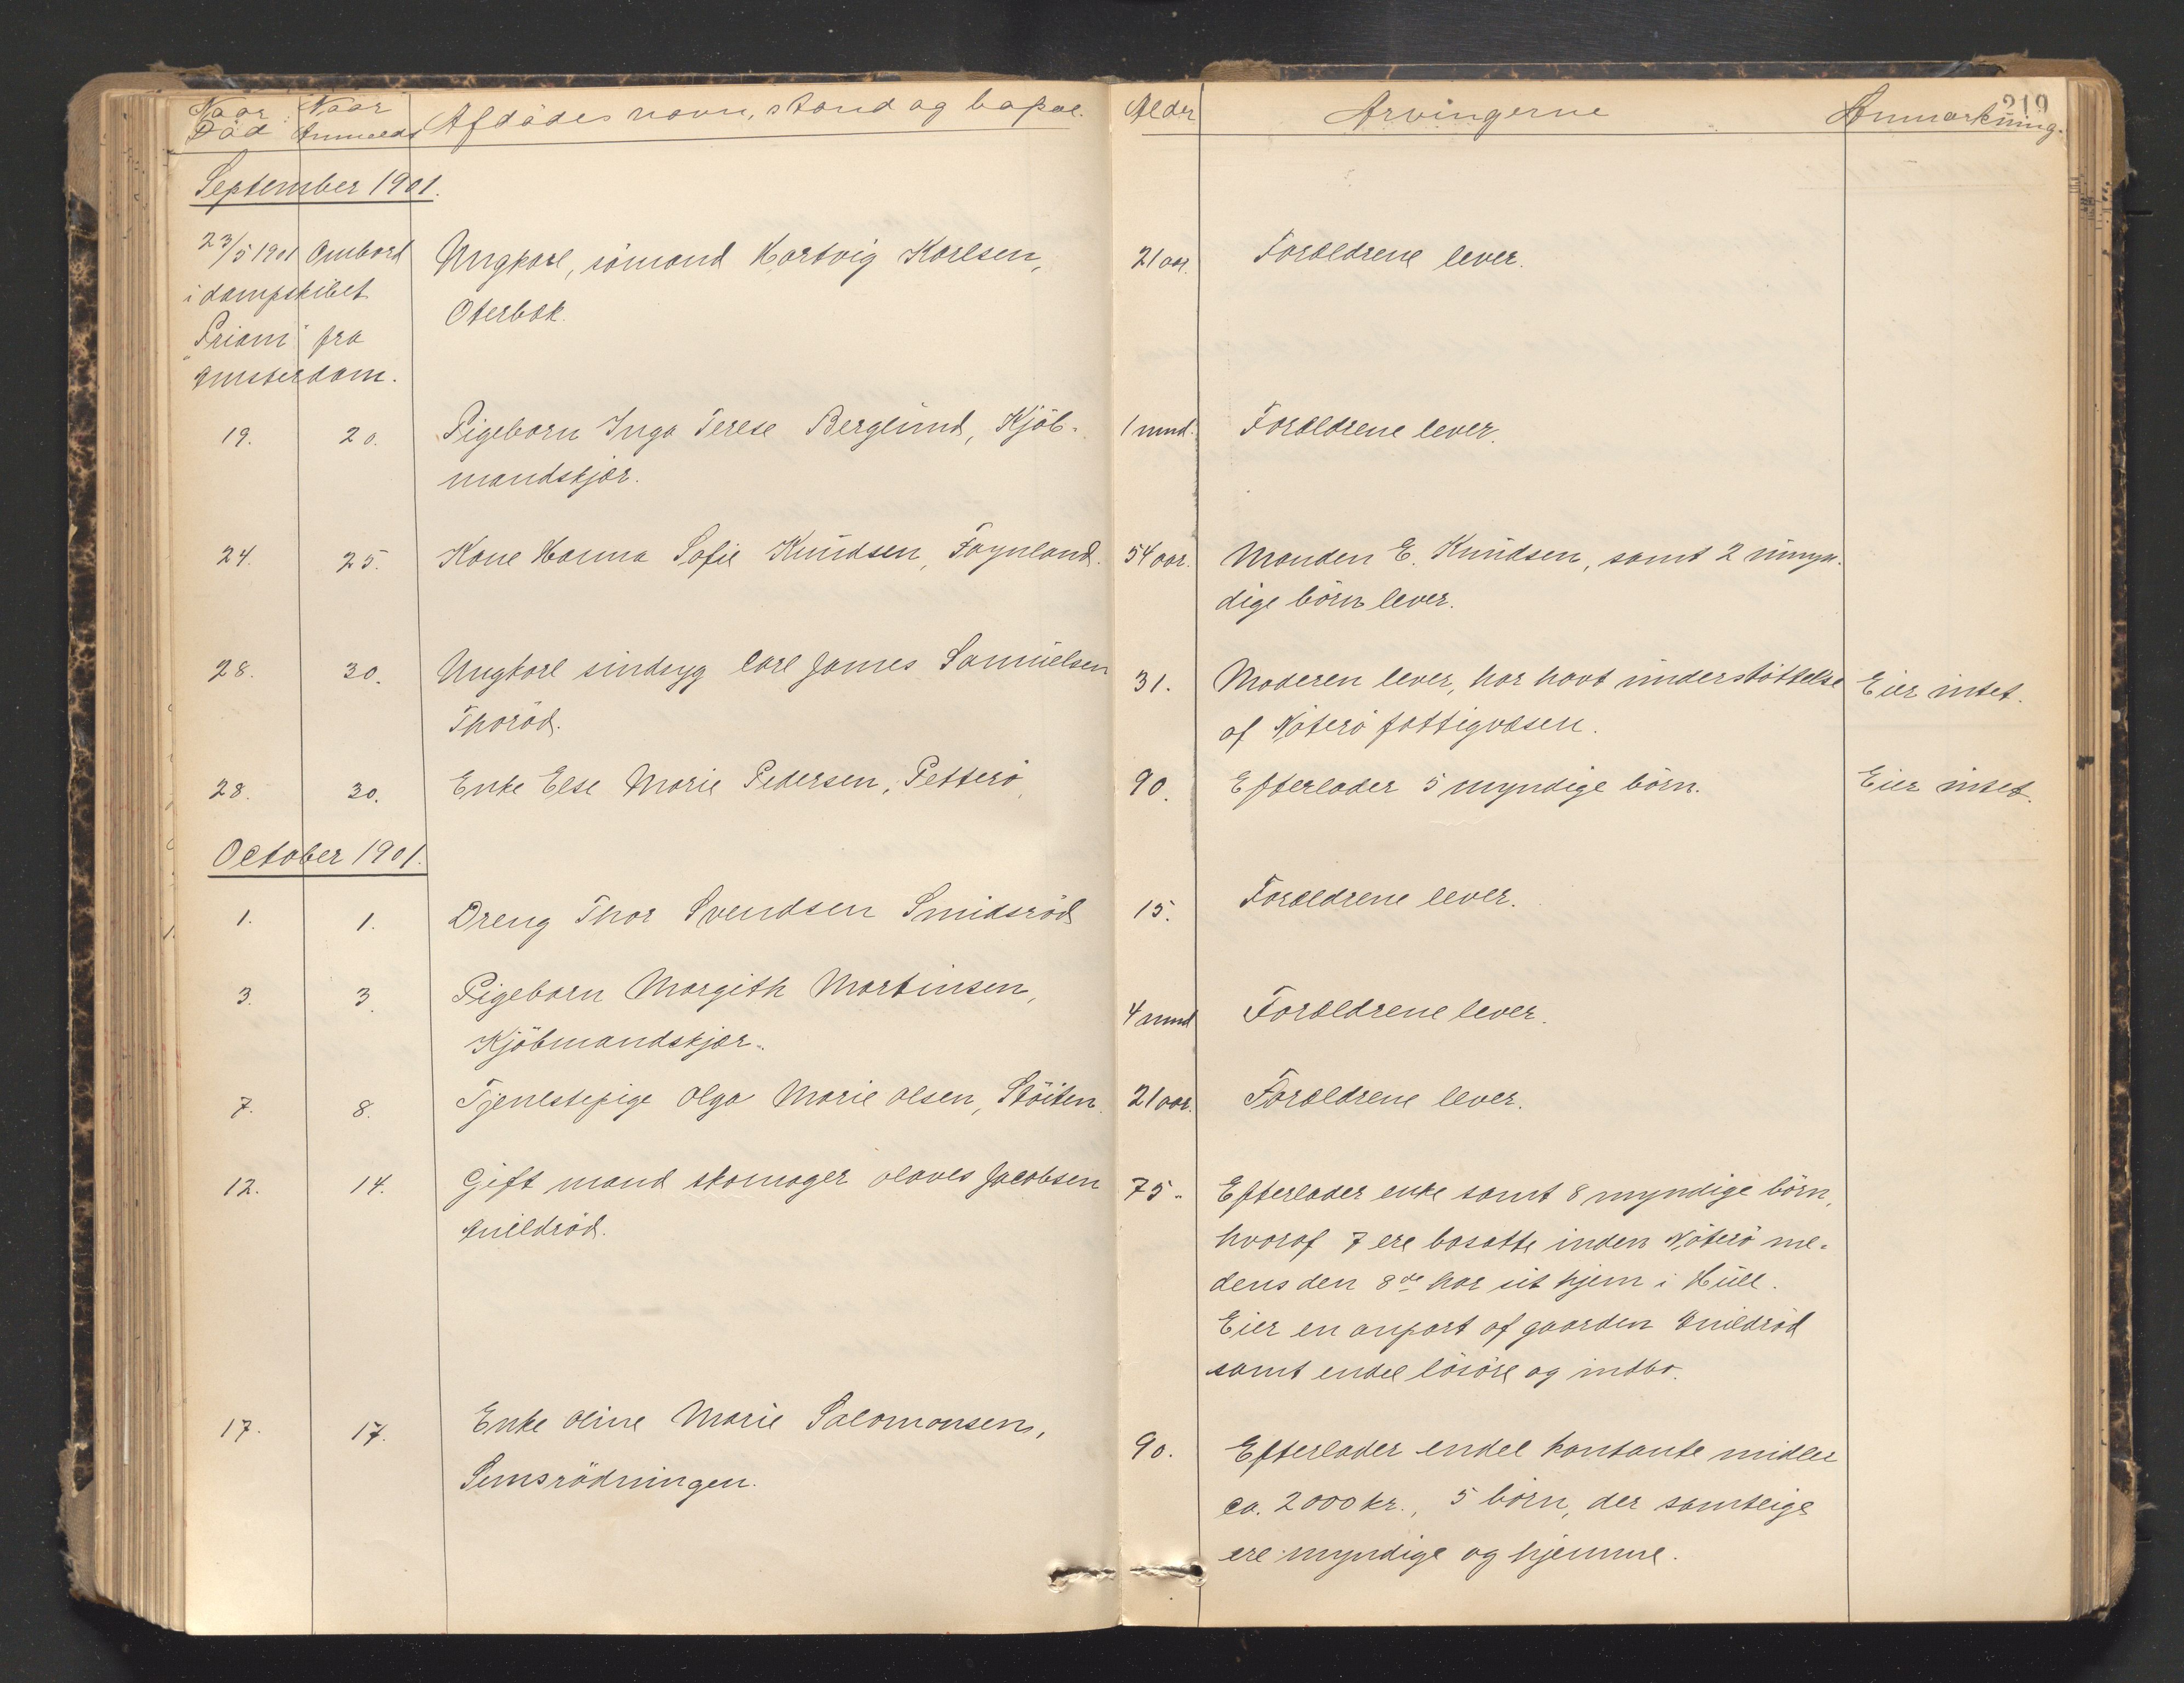 Naar Død Naar Anmeldt Afdødes navn, stand og bopæl. Alder Arvingerne Anmærkning. 219
September 1901.
23/5 1901 Ombord Ungkarl, sømand Hartvig Karlsen, 21 aar. Forældrene lever.
i dampskibet Oterbæk.
"Priam" fra
Amsterdam.
19. 20. Pigebarn Inga Terese Berglund, Kjøb- 1 mnd. Forældrene lever.
mandskjær.
24. 25. Kone Hanna Sofie Knudsen, Føynland. 54 aar. Manden E. Knudsen, samt 2 umyn-
dige børn lever.
28. 30. Ungkarl sindsyg Carl James Samuelsen 31. Moderen lever, har havt understøttelse Eier intet.
Thorød. af Nøterø fattigvæsen.
28. 30. Enke Else Marie Pedersen, Petterø, 90. Efterlader 5 myndige børn. Eier intet.
October 1901.
1. 1. Dreng Thor Svendsen Smidsrød 15. Forældrene lever.
3. 3. Pigebarn Margith Martinsen, 4 mnd Forældrene lever.
Kjøbmandskjær.
7. 8. Tjenestepige Olga Marie Olsen, Støiten. 21 aar. Forældrene lever.
12. 14. Gift mand skomager Olaves Jacobsen 75. Efterlader enke samt 8 myndige børn,
Duildrød. hvoraf 7 ere bosatte inden Nøterø me-
dens den 8de har sit hjem i Hull.
Eier en anpart af gaarden Duildrød
samt endel løsøre og indbo.
17. 17. Enke Oline Marie Salomonsen, 90. Efterlader endel kontante midler
Semsrødningen. ca. 2000 kr., 5 børn, der samtlige
ere myndige og hjemme.